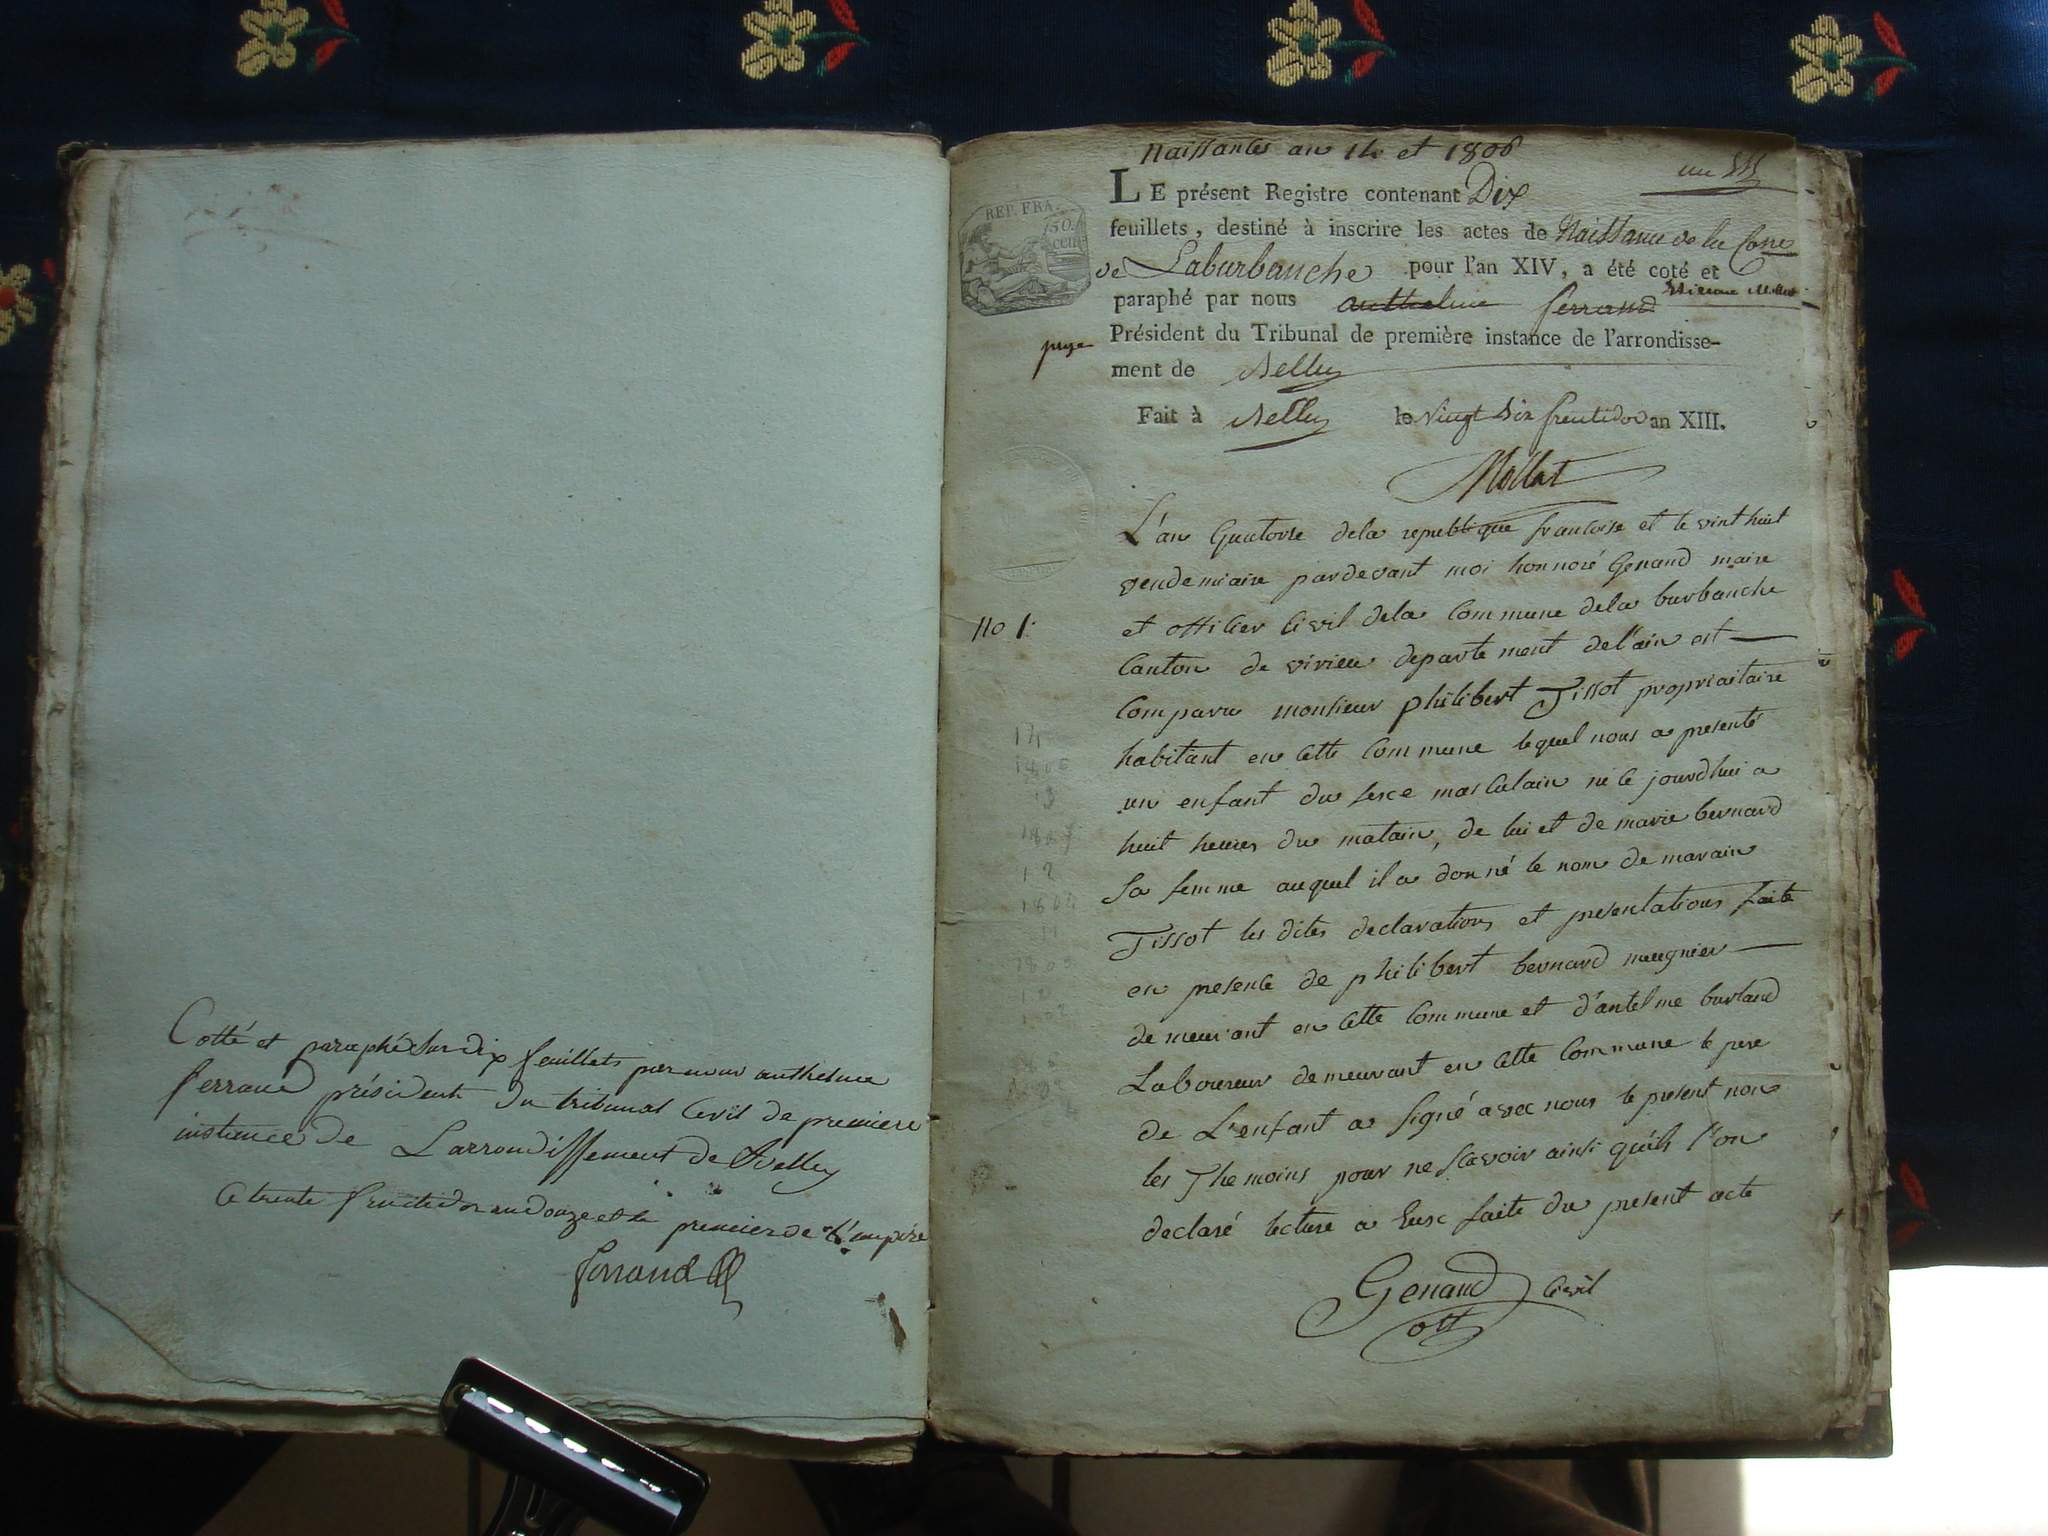 Cotté et paraphé sur dix feuillets par nous anthelme
ferrand président du tribunal Civil de premiere
instance de Larrondissement de Belley
Ce trente fructidor an douze et le premier de L'empire
ferrand
Naissances an 14 et 1806
un
REP. FRA.
50.
cent
LE présent Registre contenant Dix
feuillets, destiné à inscrire les actes de Naissance de la Cone
de Laburbanche pour l'an XIV, a été coté et
paraphé par nous anthelme ferrand
Président du Tribunal de première instance de l'arrondisse-
ment de Belley
Fait à Belley le Vingt Six fructidor an XIII.
Mollat
No 1.
L'an Quatorse dela republique francoise et le vint huit
vendemiaire pardevant moi honnoré Genand maire
et officier Civil dela Commune dela burbanche
Canton de virieu departement del'ain est
Comparu monsieur philibert Tissot propriaitaire
habitant en Cette Commune lequel nous a presenté
un enfant du sexe masculain né Ce jourdhui a
huit heures du matain, de lui et de marie bernard
Sa femme auquel il a donné le nom de marain
Tissot les dites declarations et presentations faite
en presence de philibert bernard meugnier
demeurant en Cette Commune et d'antelme burland
Laboureur demeurant en Cette Commune le pere
de L'enfant a signé avec nous le present non
les Themoins pour ne scavoir ainsi quils l'on
declaré lecture a Eux faite du present acte
Genand Civil
off